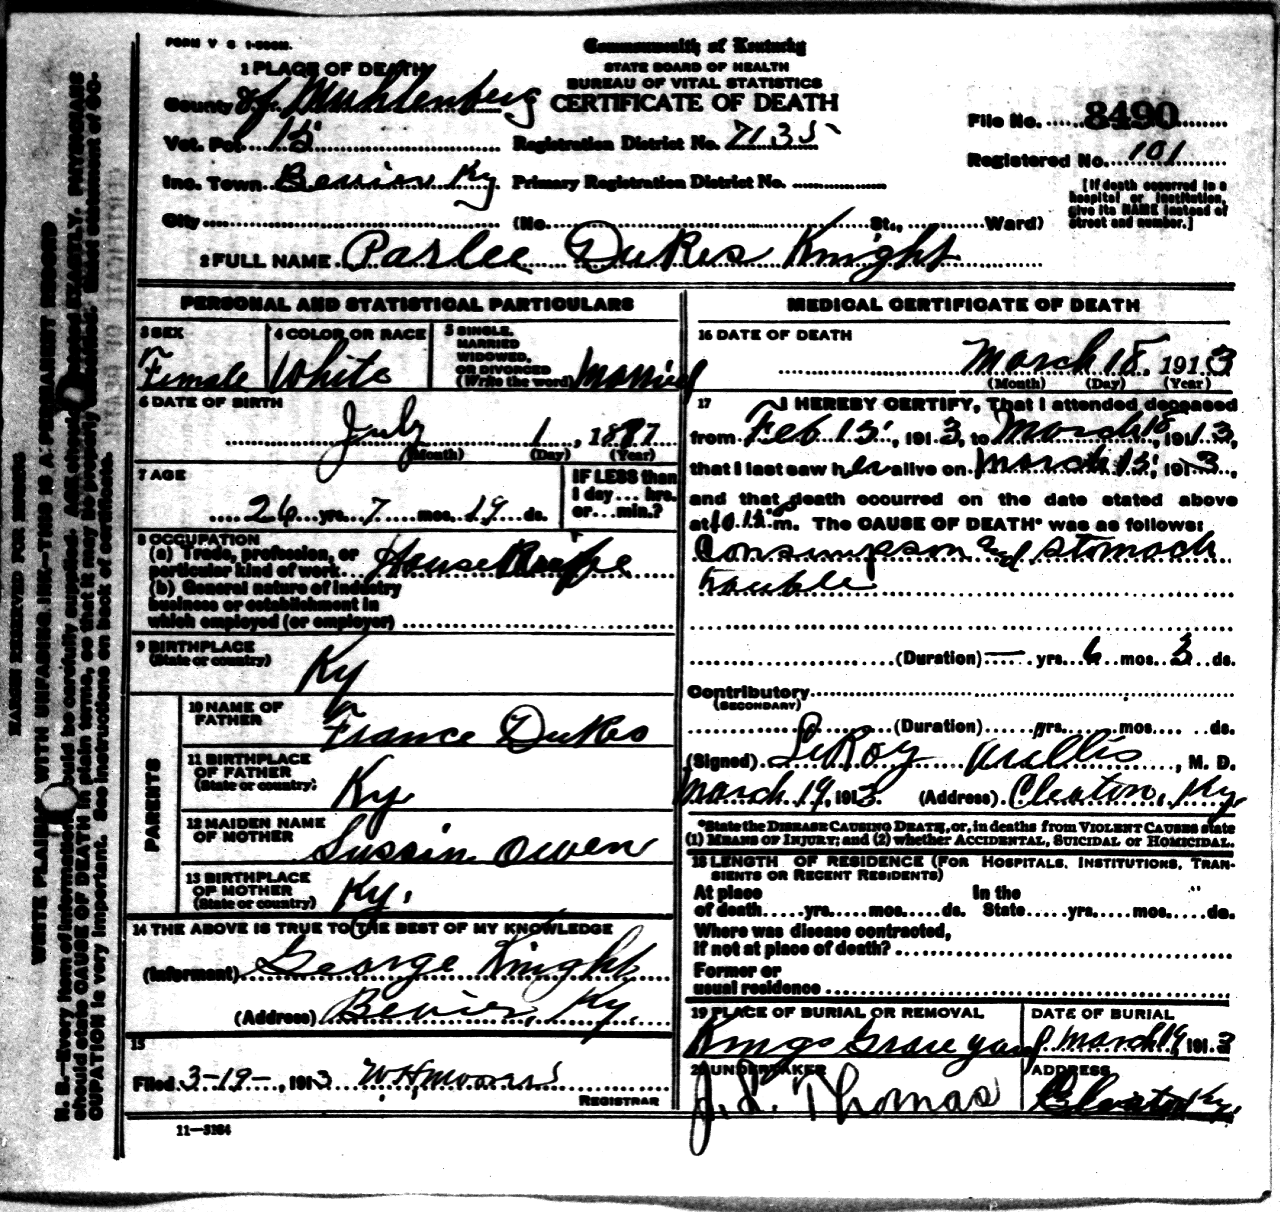 FORM V S 1-500M.
Commonwealth of Kentucky
STATE BOARD OF HEALTH
BUREAU OF VITAL STATISTICS
CERTIFICATE OF DEATH
1 PLACE OF DEATH
County of Muhlenberg
Vot. Pct. 15
Registration District No. 7135
Inc. Town Bevier Ky
Primary Registration District No.
City (No. St., Ward)
File No. 8490
Registered No. 101
[If death occurred in a
hospital or institution,
give its NAME instead of
street and number.]
2 FULL NAME Parlee Dukes Knight
PERSONAL AND STATISTICAL PARTICULARS
3 SEX
Female
4 COLOR OR RACE
White
5 SINGLE,
MARRIED
WIDOWED,
OR DIVORCED
(Write the word) Married
6 DATE OF BIRTH
July 1, 1887
(Month) (Day) (Year)
7 AGE
26 yrs. 7 mos. 19 ds.
IF LESS than
1 day... hrs.
or... min.?
8 OCCUPATION
(a) Trade, profession, or
particular kind of work House Wife
(b) General nature of industry
business or establishment in
which employed (or employer)
9 BIRTHPLACE
(State or country)
Ky
PARENTS
10 NAME OF
FATHER
France Dukes
11 BIRTHPLACE
OF FATHER
(State or country)
Ky
12 MAIDEN NAME
OF MOTHER
Sussin Owen
13 BIRTHPLACE
OF MOTHER
(State or country)
Ky.
14 THE ABOVE IS TRUE TO THE BEST OF MY KNOWLEDGE
(Informant) George Knight
(Address) Bevier, Ky.
15
Filed 3-19-, 1913 W H Moores
REGISTRAR
11—3184
MEDICAL CERTIFICATE OF DEATH
16 DATE OF DEATH
March 18, 1913
(Month) (Day) (Year)
17 I HEREBY CERTIFY, That I attended deceased
from Feb 15, 1913, to March 18, 1913,
that I last saw her alive on March 15, 1913,
and that death occurred on the date stated above
at m. The CAUSE OF DEATH* was as follows:
Consumpson and stomach
trouble
(Duration) — yrs. 6 mos. 3 ds.
Contributory
(SECONDARY)
(Duration) yrs. mos. ds.
(Signed) LeRoy Willis, M. D.
March 19, 1913. (Address) Cleaton, Ky.
*State the DISEASE CAUSING DEATH, or, in deaths from VIOLENT CAUSES state
(1) MEANS OF INJURY; and (2) whether ACCIDENTAL, SUICIDAL OR HOMICIDAL.
18 LENGTH OF RESIDENCE (FOR HOSPITALS, INSTITUTIONS, TRAN-
SIENTS OR RECENT RESIDENTS)
At place In the
of death yrs. mos. ds. State yrs. mos. ds.
Where was disease contracted,
if not at place of death?
Former or
usual residence
19 PLACE OF BURIAL OR REMOVAL
Kings Grave yard
DATE OF BURIAL
March 19, 1913
20 UNDERTAKER
J. L. Thomas
ADDRESS
Cleaton Ky.
MARGIN RESERVED FOR BINDING
WRITE PLAINLY, WITH UNFADING INK—THIS IS A PERMANENT RECORD
N. B.—Every item of information should be carefully supplied. AGE should be stated EXACTLY. PHYSICIANS
should state CAUSE OF DEATH in plain terms, so that it may be properly classified. Exact statement of OC-
CUPATION is very important. See instructions on back of certificate.